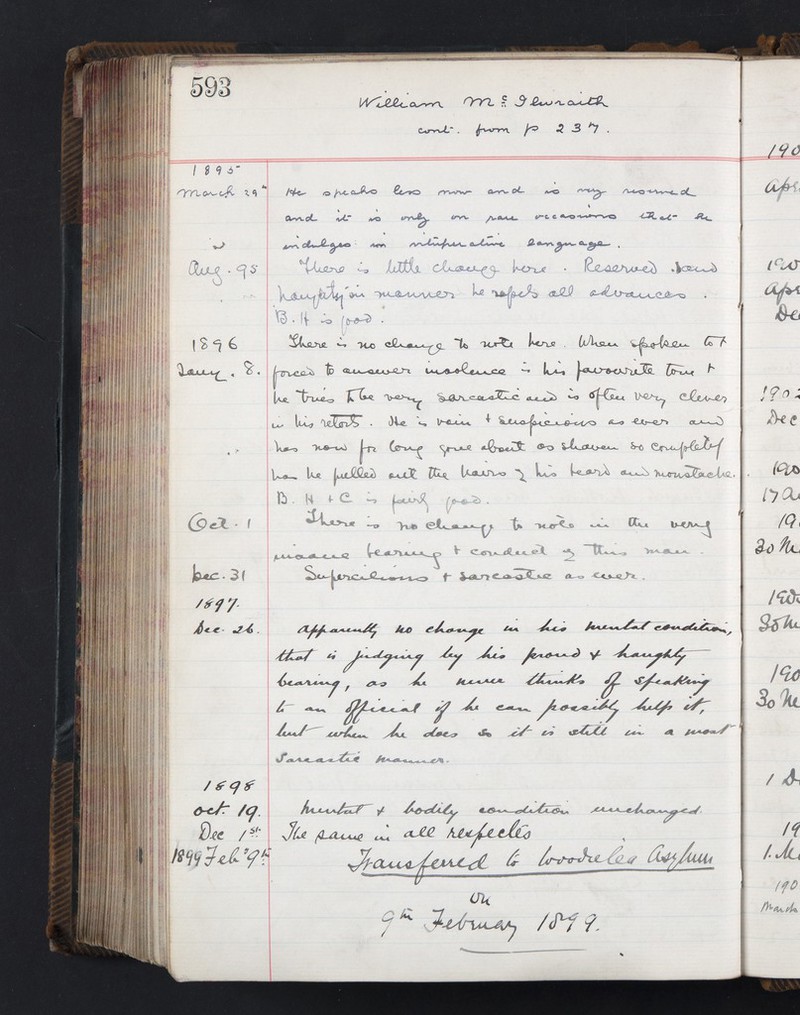 593
William McIlwraith
cont. from p 237.
1895
March 29th He speaks less now and is very reserved
and it is only on rare occasions that he
indulges in vituperative language.
Aug. 95 There is little change here. Reserved and
haughty in manner he repels all advances.
B. H is good.
1896 There is no change to note here. When spoken to &
Jany. 8. forced to answer insolence is his favourite tone &
he tries to be very sarcastic and is often very clever
in his retorts. He is vain & suspicious as ever and
has now for long gone about as shaven so completely
has he pulled out the hairs of his beard and moustache.
B. H & C is fairly good.
Oct. 1 There is no change to note in the very
insane bearing & conduct of this man.
Dec. 31 Supercilious & sarcastic as ever.
1897.
Dec. 26. Apparently no change in his mental condition,
that is judging by his proud & haughty
bearing, as he never thinks of speaking
to an official if he can possibly help it,
but when he does so it is still in a most
sarcastic manner.
1898
Oct. 19. Mental & bodily condition unchanged.
Dec 1st The same in all respectes
1899 Feb 9th Transferred to Woodilee Asylum
on
9th February 1899.
190
Apr
190
Apr
Dec
1902
Dec
190
17 A
19
30 M
190
30 M
190
30 Ma
1 D
19
1. M
190
March